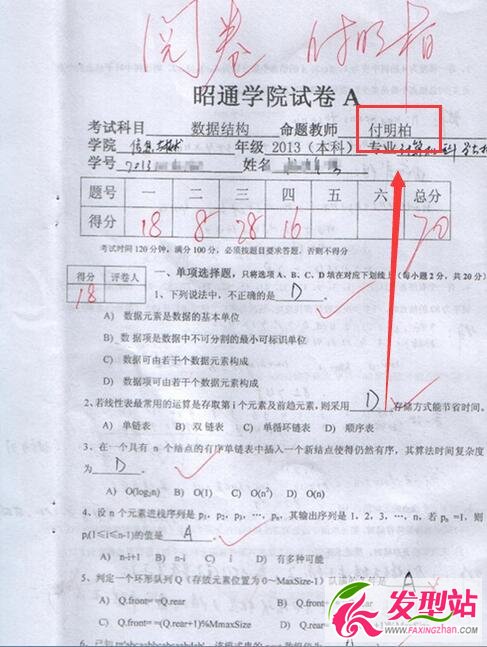 阅卷 付明柏
昭通学院试卷 A
考试科目 数据结构 命题教师 付明柏
学院 信息技术 年级 2013（本科） 专业
学号 2013 姓名
题号 一 二 三 四 五 六 总分
得分 18 8 28 16 70
考试时间 120 分钟，满分 100 分，必须按题目要求答题，否则不得分
得分 评卷人 一、单项选择题，只将选项 A、B、C、D 填在对应下划线上（每小题 2 分，共 20 分）
18 1、下列说法中，不正确的是 D 。
A） 数据元素是数据的基本单位
B） 数据项是数据中不可分割的最小可标识单位
C） 数据可由若干个数据元素构成
D） 数据项可由若干个数据元素构成
2、若线性表最常用的运算是存取第 i 个元素及前趋元素，则采用 D 存储方式能节省时间。
A） 单链表 B） 双链表 C） 单循环链表 D） 顺序表
3、在一个具有 n 个结点的有序单链表中插入一个新结点使得仍然有序，其算法时间复杂度
为 D 。
A） O(log₂n) B） O(1) C） O(n²) D） O(n)
4、设 n 个元素进栈序列是 p₁，p₂，p₃，…，pₙ，其输出序列是 1，2，3，…，n，若 pₙ =1，则
pᵢ(1≤i≤n-1)的值是 A 。
A） n-i+1 B） n-i C） i D） 有多种可能
5、判定一个环形队列 Q（存放元素位置为 0～MaxSize-1）队满的条件是 A
A） Q.front= =Q.rear B） Q.front
C） Q.front= =(Q.rear+1)%MaxSize D） Q.rear
6、已知
发型站
www.FAXINGZHAN.com